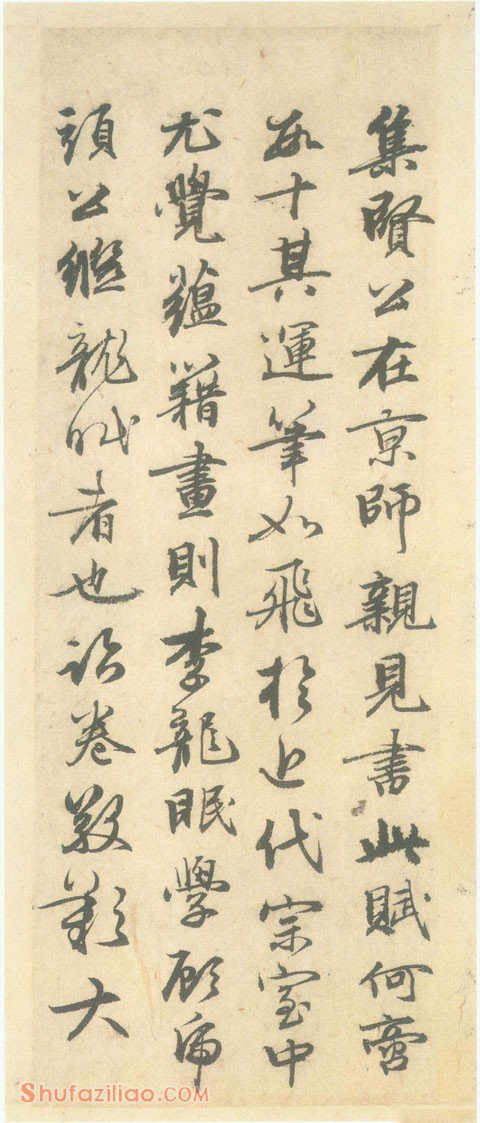 集賢公在京師親見書此賦何啻
數十其運筆如飛於近代宗室中
尤覺蘊籍畫則李龍眠學顧虎
頭公繼龍眠者也卷敬歎大
Shufaziliao.COM